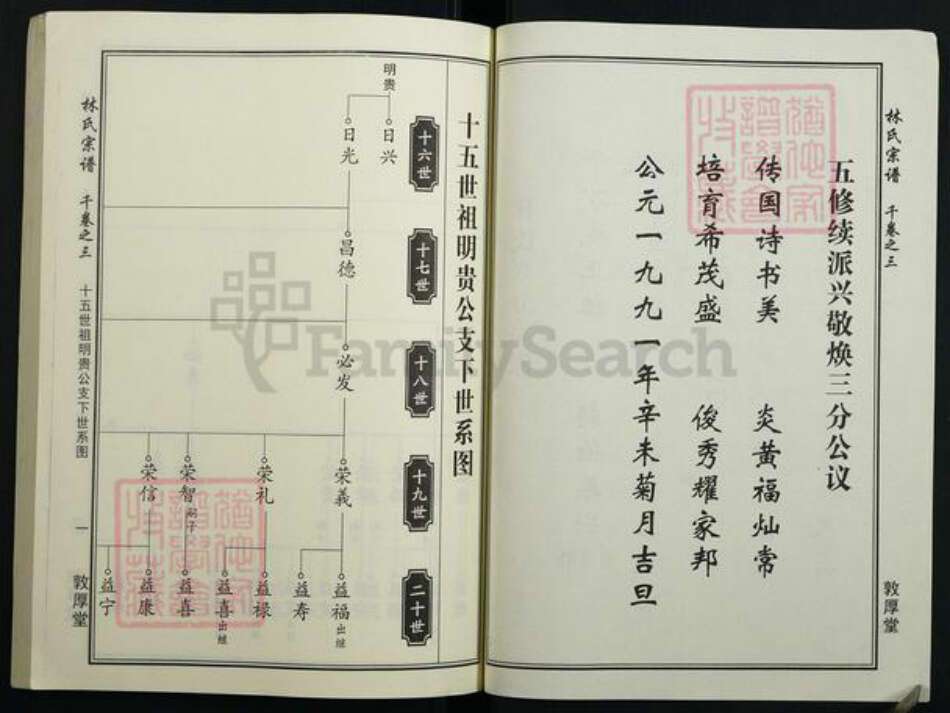 林氏宗谱
千卷之三
敦厚堂
五修续派兴敬焕三分公议
传国诗书美 炎黄福灿常
培育希茂盛 俊秀耀家邦
公元一九九一年辛未菊月吉旦
十五世祖明贵公支下世系图
十六世
十七世
十八世
十九世
二十世
明贵
日兴
日光
昌德
必发
荣義
荣礼
荣智 嗣子
荣信
益福 出继
益寿
益禄
益喜 出继
益喜
益康
益宁
林氏宗谱
千卷之三
十五世祖明贵公支下世系图
一
敦厚堂
FamilySearch